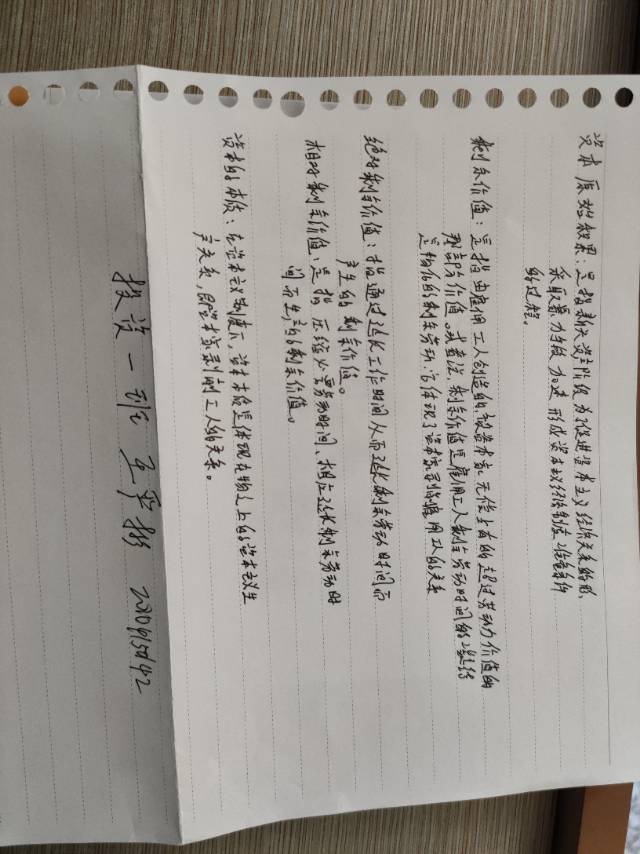 资本原始积累：是指新兴资产阶级为了促进资本主义经济关系的形
采取暴力手段加速形成资本主义经济制度，准备条件
的过程。
剩余价值：是指由雇佣工人创造的被资本家无偿占有的超过劳动力价值的
那部分价值。或者说，剩余价值是雇佣工人剩余劳动时间的凝结
是物化的剩余劳动，它体现了资本家剥削雇用工人的关系
绝对剩余价值：指通过延长工作时间从而延长剩余劳动时间而
产生的剩余价值。
相对剩余价值：是指压缩必要劳动时间、相应延长剩余劳动时
间而生产的剩余价值。
资本的本质：在资本主义制度下，资本本质是体现在物之上的资本主义生
产关系，即资本家剥削工人的关系。
投资一班 王